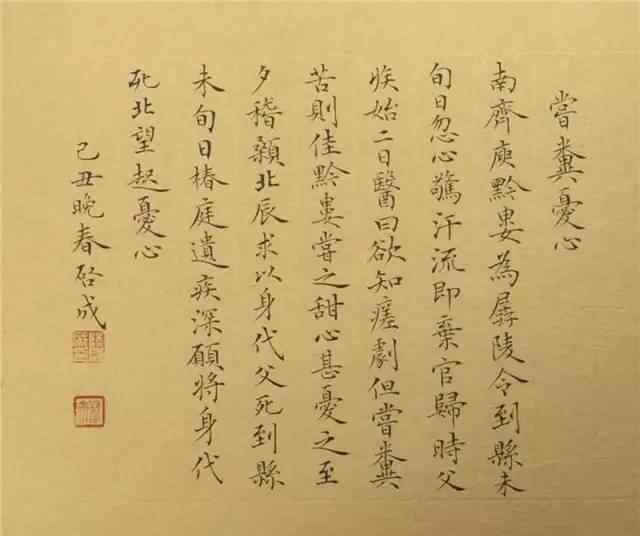 嘗糞憂心
南齊庾黔婁為孱陵令到縣未
旬日忽心驚汗流即棄官歸時父
疾始二日醫曰欲知瘥劇但嘗糞
苦則佳黔婁嘗之甜心甚憂之至
夕稽顙北辰求以身代父死到縣
未旬日椿庭遺疾深願將身代
死北望起憂心
己丑晚春启成